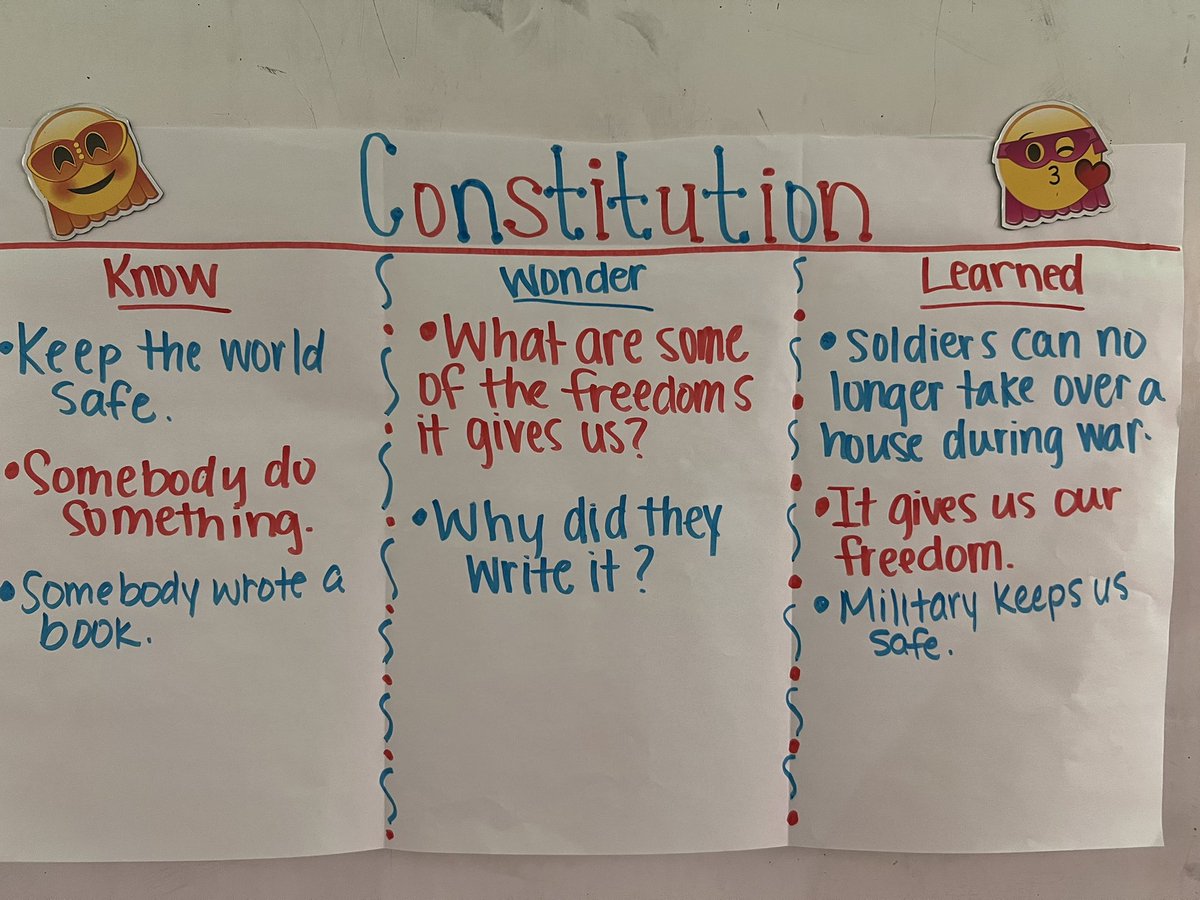 Constitution
Know
•Keep the world
safe.
•Somebody do
something.
•Somebody wrote a
book.
Wonder
•What are some
of the freedoms
it gives us?
•Why did they
write it?
Learned
•Soldiers can no
longer take over a
house during war.
•It gives us our
freedom.
•Military keeps us
safe.